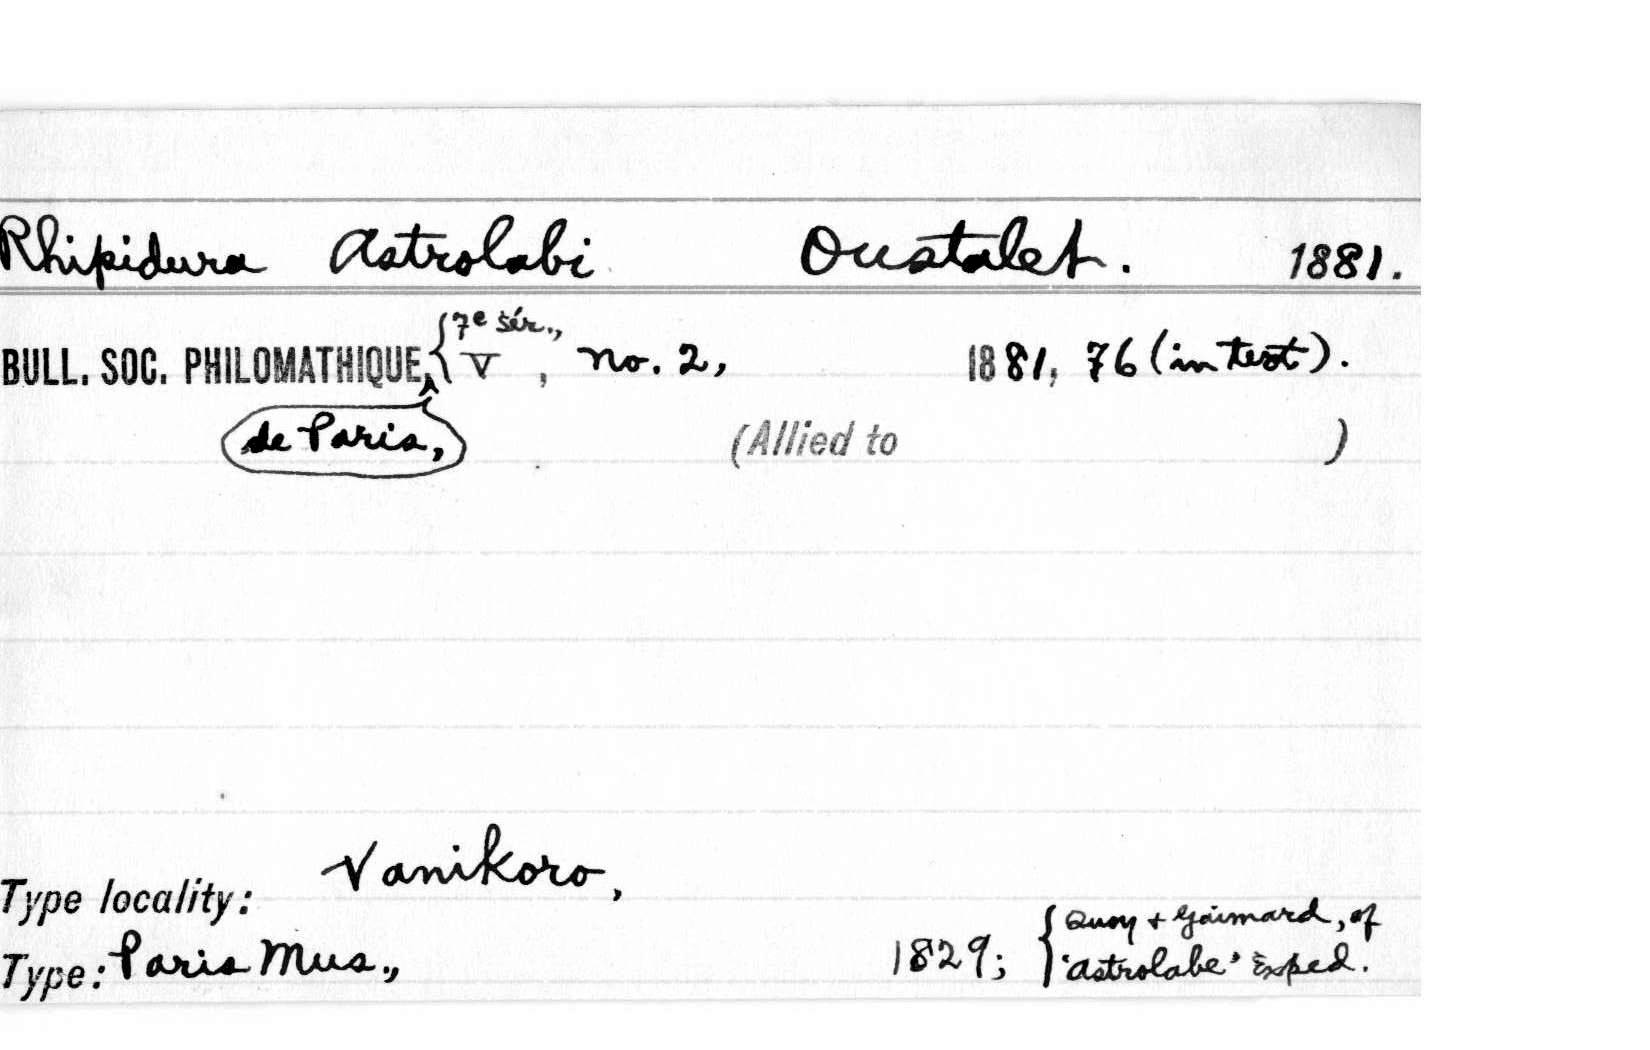 Rhipidura Astrolabi Oustalet. 1881.
7e Sér.,
BULL. SOC. PHILOMATHIQUE, V, no. 2, 1881, 76 (in text).
de Paris,
(Allied to )
Type locality: Vanikoro,
Quoy + Gaimard, of
Type: Paris Mus., 1829; 'Astrolabe' Exped.